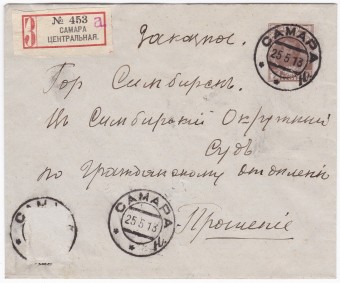 З
№ 453 a
САМАРА
ЦЕНТРАЛЬНАЯ.
Заказное.
САМАРА
25 5 13
Гор Симбирскъ.
въ Симбирскій Окружный
Судъ
по Гражданскому отдѣленію
САМА
САМАРА
25 5 13
Прошеніе